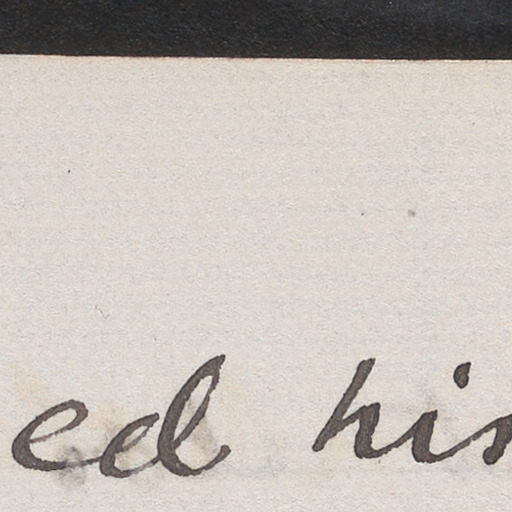 ed his